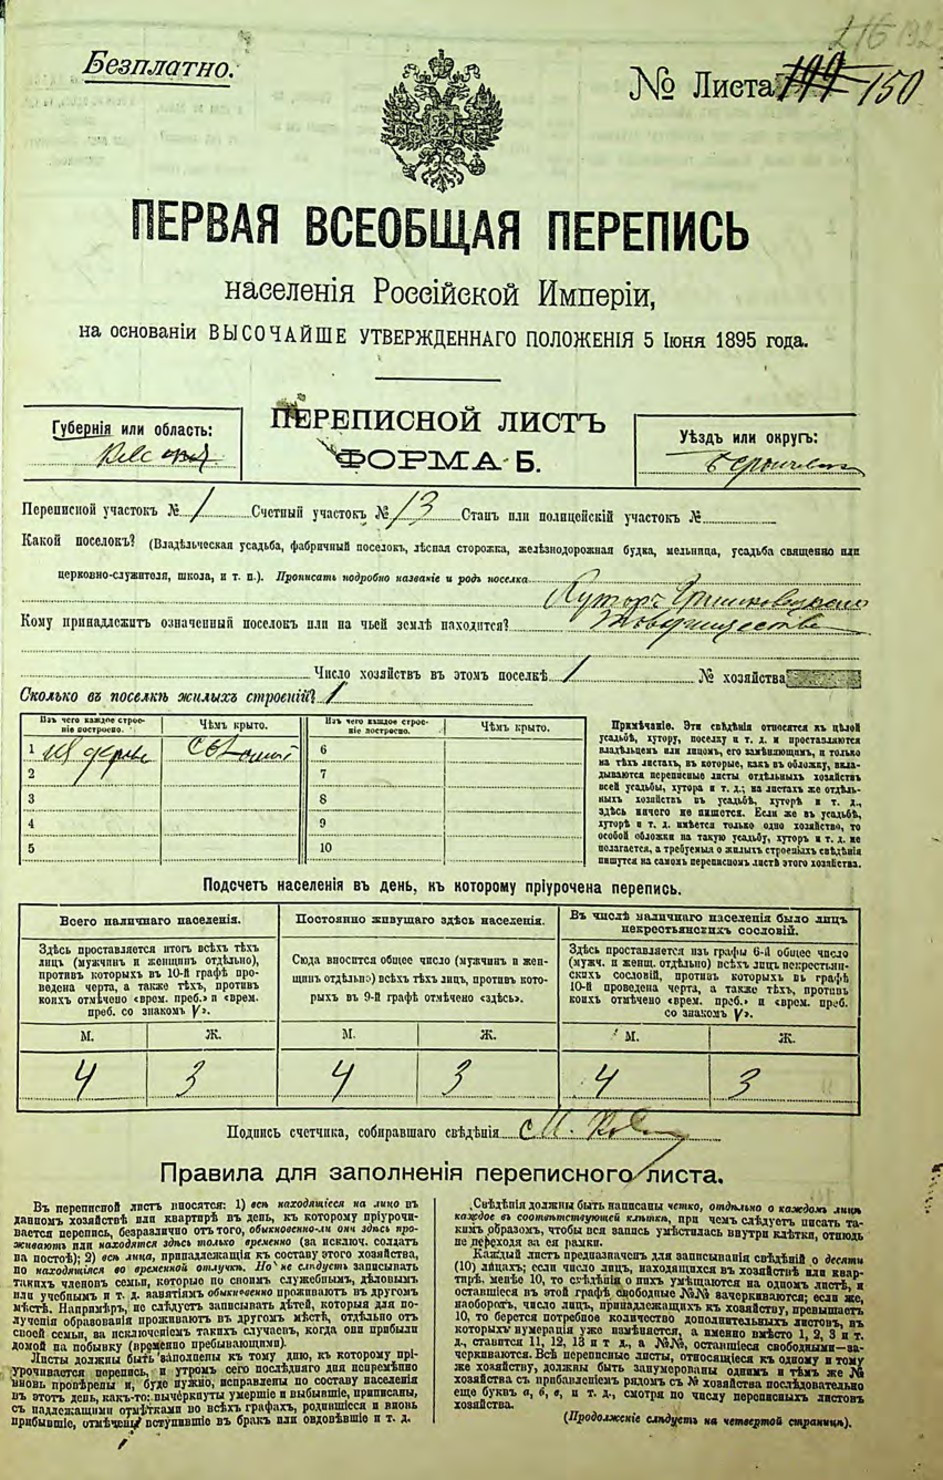 Безплатно.
№ Листа 150
ПЕРВАЯ ВСЕОБЩАЯ ПЕРЕПИСЬ
населенія Россійской Имперіи,
на основаніи ВЫСОЧАЙШЕ УТВЕРЖДЕННАГО ПОЛОЖЕНІЯ 5 Іюня 1895 года.
Губернія или область:
ПЕРЕПИСНОЙ ЛИСТЪ
ФОРМА Б.
Уѣздъ или округъ:
Переписной участокъ № 1 Счетный участокъ № 13 Станъ или полицейскій участокъ №
Какой поселокъ? (Владѣльческая усадьба, фабричный поселокъ, лѣсная сторожка, желѣзнодорожная будка, мельница, усадьба священно или
церковно-служителя, школа, и т. п.). Прописать подробно названіе и родъ поселка
Хуторъ
Кому принадлежитъ означенный поселокъ или на чьей землѣ находится?
Товарищества
Число хозяйствъ въ этомъ поселкѣ 1 № хозяйства
Сколько въ поселкѣ жилыхъ строеній? 1
Изъ чего каждое строе-
ніе построено.
Чѣмъ крыто.
Изъ чего каждое строе-
ніе построено.
Чѣмъ крыто.
1 изъ дерева
6
2
7
3
8
4
9
5
10
Примѣчаніе. Эти свѣдѣнія относятся къ цѣлой
усадьбѣ, хутору, поселку и т. д. и проставляются
владѣльцемъ или лицомъ, его замѣняющимъ, и только
на тѣхъ листахъ, въ которые, какъ въ обложку, вкла-
дываются переписные листы отдѣльныхъ хозяйствъ
всей усадьбы, хутора и т. д.; на листахъ же отдѣль-
ныхъ хозяйствъ въ усадьбѣ, хуторѣ и т. д.,
здѣсь ничего не пишется. Если же въ усадьбѣ,
хуторѣ и т. д. имѣется только одно хозяйство, то
особой обложки на такую усадьбу, хуторъ и т. д. не
полагается, а требуемыя о жилыхъ строеніяхъ свѣдѣнія
пишутся на самомъ переписномъ листѣ этого хозяйства.
Подсчетъ населенія въ день, къ которому пріурочена перепись.
Всего наличнаго населенія.
Здѣсь проставляется итогъ всѣхъ тѣхъ
лицъ (мужчинъ и женщинъ отдѣльно),
противъ которыхъ въ 10-й графѣ про-
ведена черта, а также тѣхъ, противъ
коихъ отмѣчено «врем. преб.» и «врем.
преб. со знакомъ V».
Постоянно живущаго здѣсь населенія.
Сюда вносится общее число (мужчинъ и жен-
щинъ отдѣльно) всѣхъ тѣхъ лицъ, противъ кото-
рыхъ въ 9-й графѣ отмѣчено «здѣсь».
Въ числѣ наличнаго населенія было лицъ
некрестьянскихъ сословій.
Здѣсь проставляется изъ графы 6-й общее число
(мужч. и женщ. отдѣльно) всѣхъ лицъ некрестьян-
скихъ сословій, противъ которыхъ въ графѣ
10-й проведена черта, а также тѣхъ, противъ
коихъ отмѣчено «врем. преб.» и «врем. преб.
со знакомъ V».
М. Ж. М. Ж. М. Ж.
4 3 4 3 4 3
Подпись счетчика, собиравшаго свѣдѣнія
Правила для заполненія переписного листа.
Въ переписной листъ вносятся: 1) всѣ находящіеся на лицо въ
данномъ хозяйствѣ или квартирѣ въ день, къ которому пріурочи-
вается перепись, безразлично отъ того, обыкновенно-ли они здѣсь про-
живаютъ или находятся здѣсь только временно (за исключ. солдатъ
на постоѣ); 2) всѣ лица, принадлежащія къ составу этого хозяйства,
но находящіеся во временной отлучкѣ. Но не слѣдуетъ записывать
такихъ членовъ семьи, которые по своимъ служебнымъ, дѣловымъ
или учебнымъ и т. д. занятіямъ обыкновенно проживаютъ въ другомъ
мѣстѣ. Напримѣръ, не слѣдуетъ записывать дѣтей, которыя для по-
лученія образованія проживаютъ въ другомъ мѣстѣ, отдѣльно отъ
своей семьи, за исключеніемъ такихъ случаевъ, когда они прибыли
домой на побывку (временно пребывающими).
Листы должны быть заполнены къ тому дню, къ которому прі-
урочивается перепись, и утромъ сего послѣдняго дня непремѣнно
вновь провѣрены и, буде нужно, исправлены по составу населенія
въ этотъ день, какъ-то: вычеркнуты умершіе и выбывшіе, приписаны,
съ надлежащими отмѣтками во всѣхъ графахъ, родившіеся и вновь
прибывшіе, отмѣчены вступившіе въ бракъ или овдовѣвшіе и т. д.
Свѣдѣнія должны быть написаны четко, отдѣльно о каждомъ лицѣ
каждое въ соотвѣтствующей клѣткѣ, при чемъ слѣдуетъ писать та-
кимъ образомъ, чтобы вся запись умѣстилась внутри клѣтки, отнюдь
не переходя за ея рамки.
Каждый листъ предназначенъ для записыванія свѣдѣній о десяти
(10) лицахъ; если число лицъ, находящихся въ хозяйствѣ или квар-
тирѣ, менѣе 10, то свѣдѣнія о нихъ умѣщаются на одномъ листѣ, и
оставшіеся въ этой графѣ свободные №№ вачеркиваются; если же,
наоборотъ, число лицъ, принадлежащихъ къ хозяйству, превышаетъ
10, то берется потребное количество дополнительныхъ листовъ, въ
которыхъ нумерація уже измѣняется, а именно вмѣсто 1, 2, 3 и т.
д., ставится 11, 12, 13 и т. д., а №№, оставшіеся свободными—за-
черкиваются. Всѣ переписные листы, относящіеся къ одному и тому
же хозяйству, должны быть занумерованы однимъ и тѣмъ же №
хозяйства съ прибавленіемъ рядомъ съ № хозяйства послѣдовательно
еще буквъ а, б, в, и т. д., смотря по числу переписныхъ листовъ
хозяйства.
(Продолженіе слѣдуетъ на четвертой страницѣ).